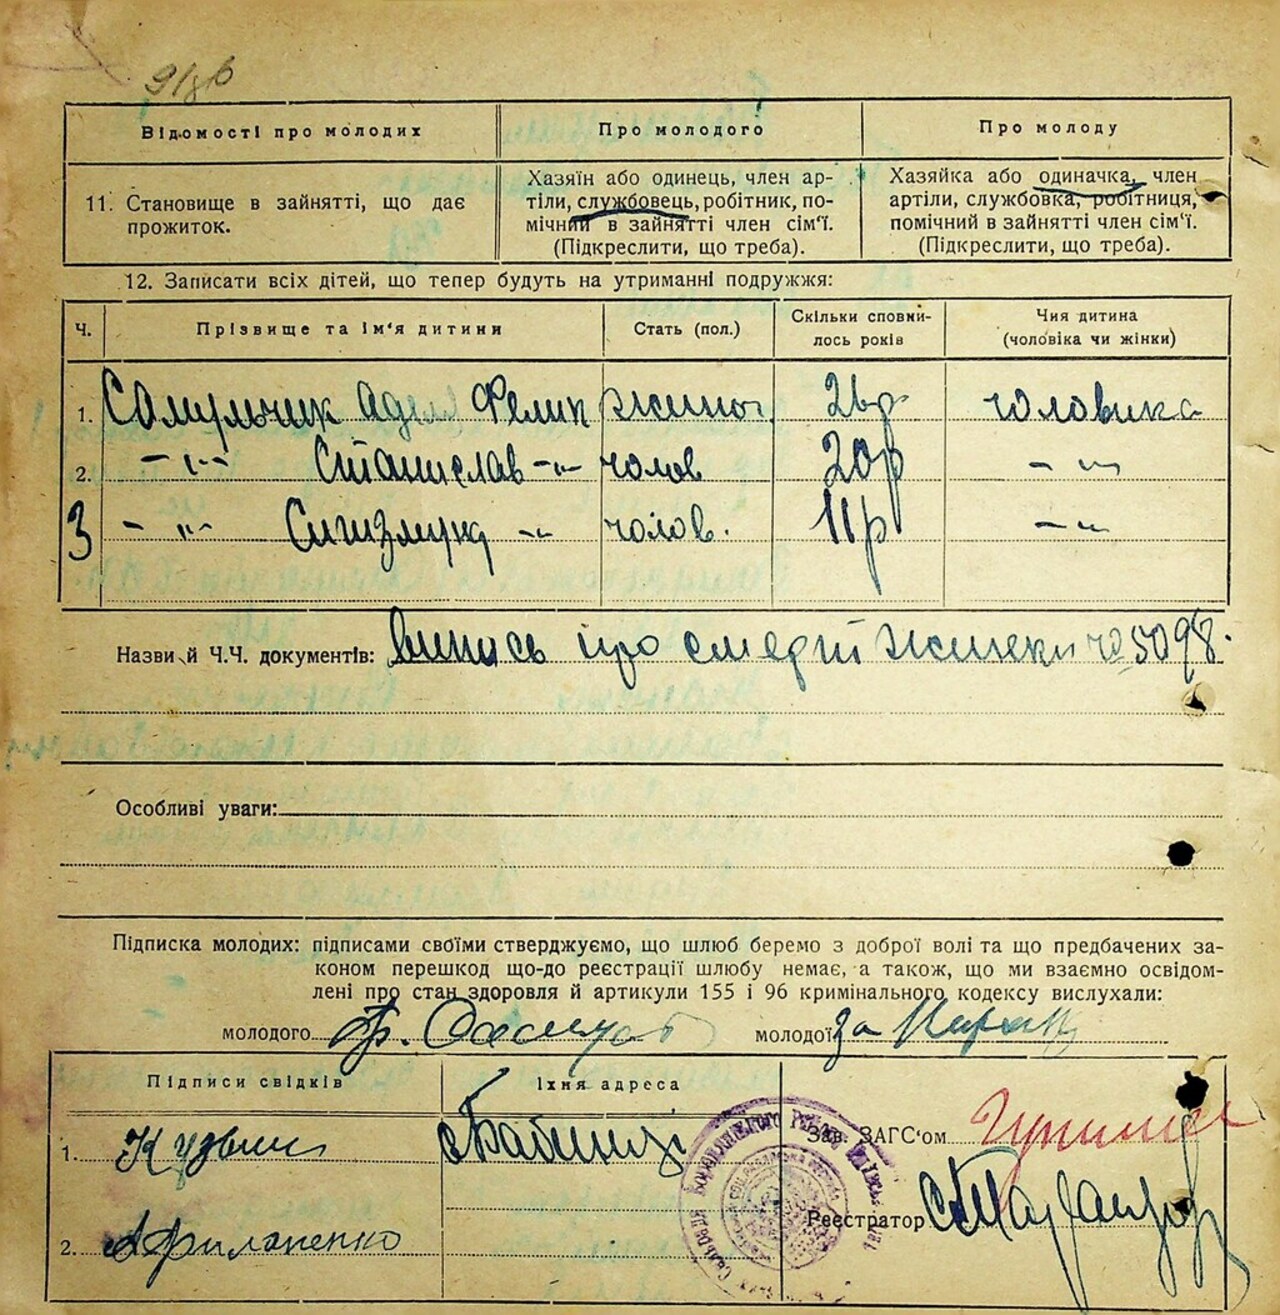 Відомості про молодих
Про молодого
Про молоду
11. Становище в зайнятті, що дає
прожиток.
Хазяїн або одинець, член ар-
тіли, службовець, робітник, по-
мічний в зайнятті член сім'ї.
(Підкреслити, що треба).
Хазяйка або одиначка, член
артіли, службовка, робітниця,
помічний в зайнятті член сім'ї.
(Підкреслити, що треба).
12. Записати всіх дітей, що тепер будуть на утриманні подружжя:
Ч.
Прізвище та ім'я дитини
Стать (пол.)
Скільки сповни-
лось років
Чия дитина
(чоловіка чи жінки)
1. Самульчик Фелик 26р чоловика
2. -"- Станислав -"- чолов 20р -"-
3 -"- Сигизмунд -"- чолов. 11р -"-
Назви й Ч.Ч. документів: Випись про смерть жинки №5098.
Особливі уваги:
Підписка молодих: підписами своїми стверджуємо, що шлюб беремо з доброї волі та що предбачених за-
коном перешкод що-до реєстрації шлюбу немає, а також, що ми взаємно освідом-
лені про стан здоровля й артикули 155 і 96 кримінального кодексу вислухали:
молодого
молодої за
Підписи свідків
Їхня адреса
1.
с Бабинці
Зав. ЗАГС'ом
Реєстратор
2. Афилоненко